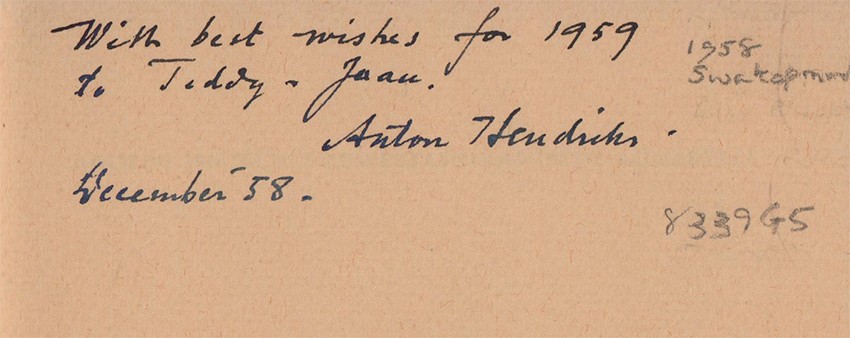 With best wishes for 1959
to Teddy - Joan.
Anton Hendriks.
December 58.
1958
Swakopmund
8339G5